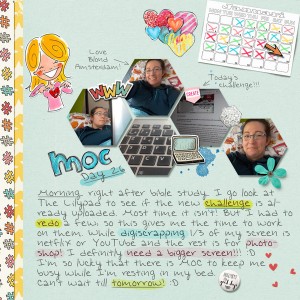 Love
Blond
Amsterdam!
Today's
challenge!!!
WWW
CREATE
moc
Day 26
Morning, right after bible study, I go look at
The Lilypad to see if the new challenge is al-
ready uploaded. Most time it isn't! But I had to
redo a few, so this gives me the time to work
on them. While digiscrapping 1/3 of my screen is
netflix or YouTube and the rest is for photo-
shop! I definitly need a bigger screen!!! :D
I'm so lucky that there is MOC to keep me
busy while I'm resting in my bed.
Can't wait till tomorrow! :D